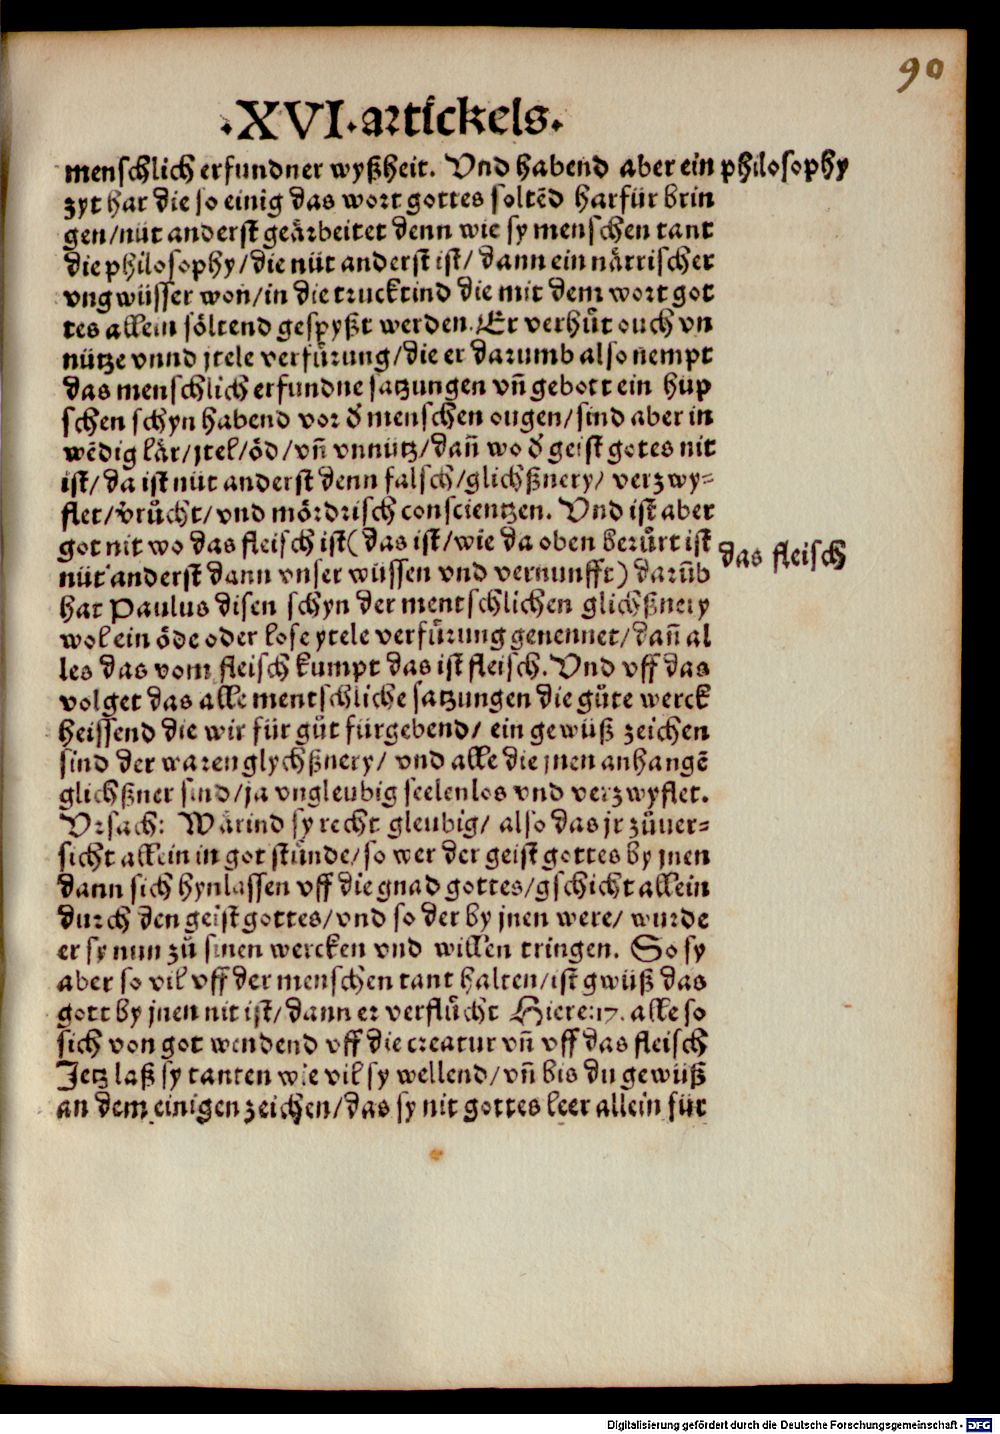 90
.XVI. artickels.
menschlich erfundner wyßheit. Vnd habend aber ein philosophy
zyt har die so einig das wort gottes soltēd harfür brin
gen/nüt anderst geärbeitet denn wie sy menschen tant
die philosophy/die nüt anderst ist/dann ein närrischer
vngwüsser won/in die trucktind die mit dem wort got
tes allein söltend gespyßt werden. Er verhůt ouch vn
nütze vnnd jtele verfůrung/die er darumb also nempt
das menschlich erfundne satzungen vñ gebott ein hüp
schen schyn habend vor ð menschen ougen/sind aber in
wēdig lär/jtel/öd/vñ vnnütz/dañ wo ð geist gotes nit
ist/da ist nüt anderst denn falsch/glichßnery/ verzwy-
flet/v̈růcht/vnd mördrisch conscientzen. Vnd ist aber
got nit wo das fleisch ist(das ist/wie da oben berůrt ist
das fleisch
nüt anderst dann vnser wüssen vnd vernunfft) darūb
hat Paulus disen schyn der mentschlichen glichßnery
wol ein öde oder lose ytele verfůrung genennet/dañ al
les das vom fleisch kumpt das ist fleisch. Vnd vff das
volget das alle mentschliche satzungen die gůte werck
heissend die wir für gůt fürgebend/ ein gewüß zeichen
sind der waren glychßnery/ vnd alle die jnen anhangē
glichßner sind/ja vngleubig seelenlos vnd verzwyflet.
Vrsach: Wärind sy recht gleubig/ also das jr zůuer-
sicht allein in got stünde/so wer der geist gottes by jnen
dann sich hynlassen vff die gnad gottes/gschicht allein
durch den geist gottes/vnd so der by jnen were/ wurde
er sy nun zů sinen wercken vnd willen tringen. So sy
aber so vil vff der menschen tant halten/ist gwüß das
gott by jnen nit ist/dann er verflůcht Hiere:17. alle so
sich von got wendend vff die creatur vñ vff das fleisch
Jetz laß sy tanten wie vil sy wellend/vñ bis du gewüß
an dem einigen zeichen/das sy nit gottes leer allein für
Digitalisierung gefördert durch die Deutsche Forschungsgemeinschaft - DFG